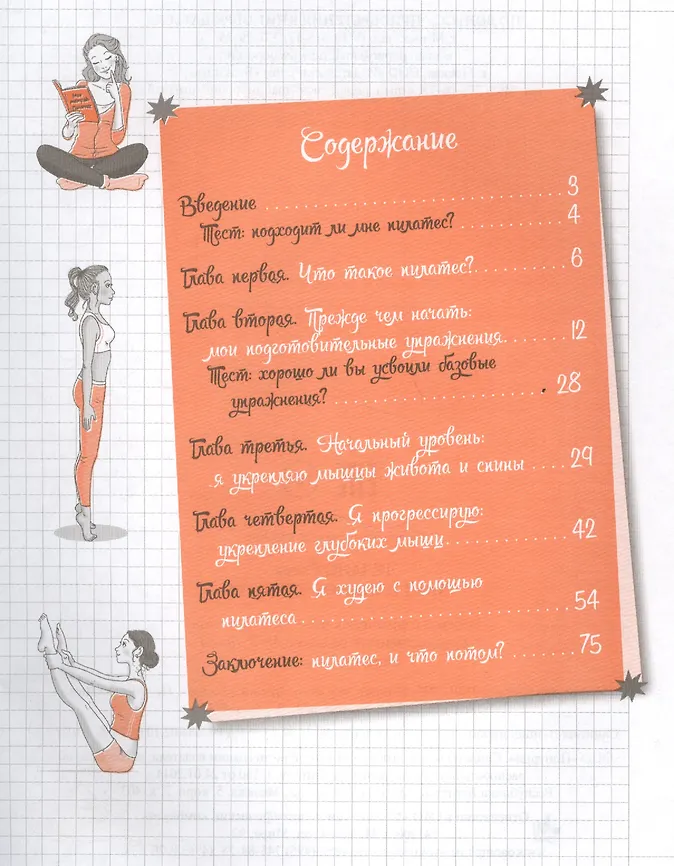 Содержание
Введение . . . . . . . . . . . . . . . . . . . . . . . . . . . . . . 3
Тест: подходит ли мне пилатес? . . . . . . . . . . . 4
Глава первая. Что такое пилатес?. . . . . . . . . . 6
Глава вторая. Прежде чем начать:
мои подготовительные упражнения. . . . . . . 12
Тест: хорошо ли вы усвоили базовые
упражнения? . . . . . . . . . . . . . . . . . . . . . 28
Глава третья. Начальный уровень:
я укрепляю мышцы живота и спины . . . . 29
Глава четвертая. Я прогрессирую:
укрепление глубоких мышц. . . . . . . . . . . . 42
Глава пятая. Я худею с помощью
пилатеса . . . . . . . . . . . . . . . . . . . . . . . . . . . 54
Заключение: пилатес, и что потом? . . . . . . . 75